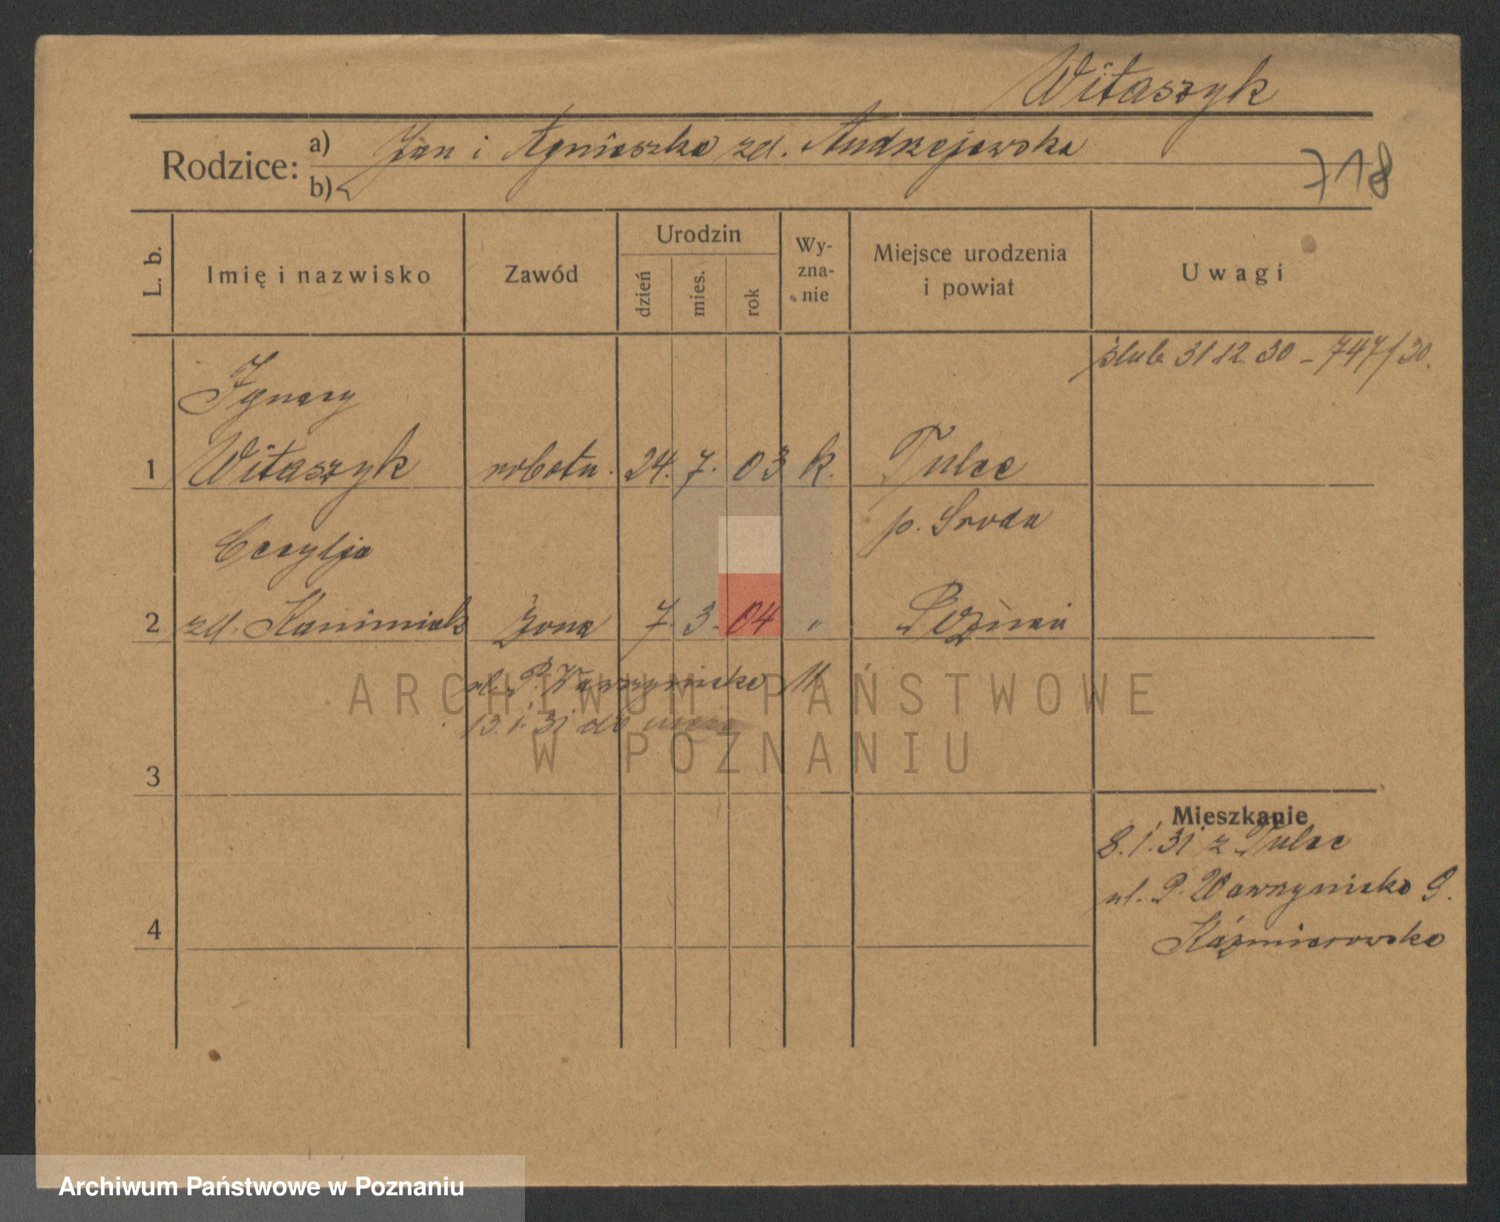 Witaszyk
Rodzice: a) Jan i Agnieszka zd. Andrzejewska
b)
718
L. b. Imię i nazwisko Zawód Urodzin dzień mies. rok Wy-zna-nie Miejsce urodzenia i powiat Uwagi
ślub 31 12 30 - 747/30.
Ignacy
1 Witaszyk robotn. 24. 7. 03 k. Tulce
p. Środa
Cecylja
2 zd. Kaźmierczak żona 7. 3. 04 " Poznań
ul. P. Wawrzyniaka 11
13.1.31 do męża
ARCHIWUM PAŃSTWOWE
W POZNANIU
3
Mieszkanie
8.1.31 z Tulce
ul. P. Wawrzyniaka 9.
4
Kaźmierowska
Archiwum Państwowe w Poznaniu